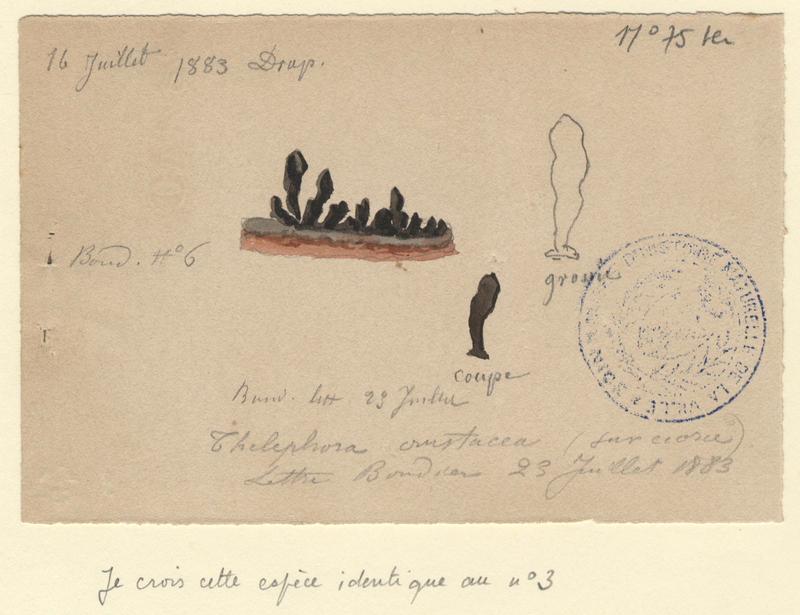 16 Juillet 1883 Drap.
N° 75 ter
Boud. N° 6
grossie
D'HISTOIRE NATURELLE DE LA VILLE
coupe
Boud. litt 23 Juillet
Thelephora crustacea (sur
Lettre Boudier 23 Juillet 1883
Je crois cette espèce identique au n° 3